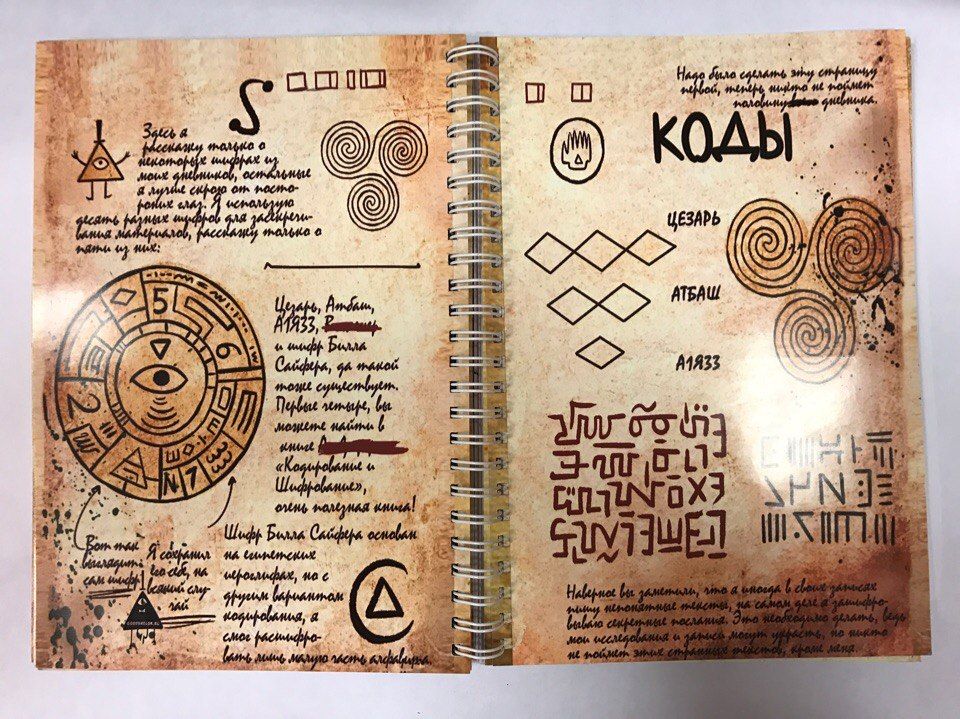 Здесь я
расскажу только о
некоторых шифрах из
моих дневников, остальные
я лучше скрою от посто-
ронних глаз. Я использую
десять разных шифров для засекречи-
вания материалов, расскажу только о
пяти из них:
Цезарь, Атбаш,
А1Я33,
и шифр Билла
Сайфера, да такой
тоже существует.
Первые четыре, вы
можете найти в
книге
«Кодирование и
Шифрование»,
очень полезная книга!
5
6
2
7
Вот так
выглядит
сам шифр!
Я сохранил
его себе, на
всякий слу-
чай
Шифр Билла Сайфера основан
на египетских
иероглифах, но с
другим вариантом
кодирования, я
смог расшифро-
вать лишь малую часть алфавита.
Надо было сделать эту страницу
первой, теперь никто не поймет
половину дневника.
КОДЫ
ЦЕЗАРЬ
АТБАШ
А1Я33
Наверное вы заметили, что я иногда в своих записях
пишу непонятные тексты, на самом деле я зашифро-
вываю секретные послания. Это необходимо делать, ведь
мои исследования и записи могут украсть, но никто
не поймет этих странных текстов, кроме меня.